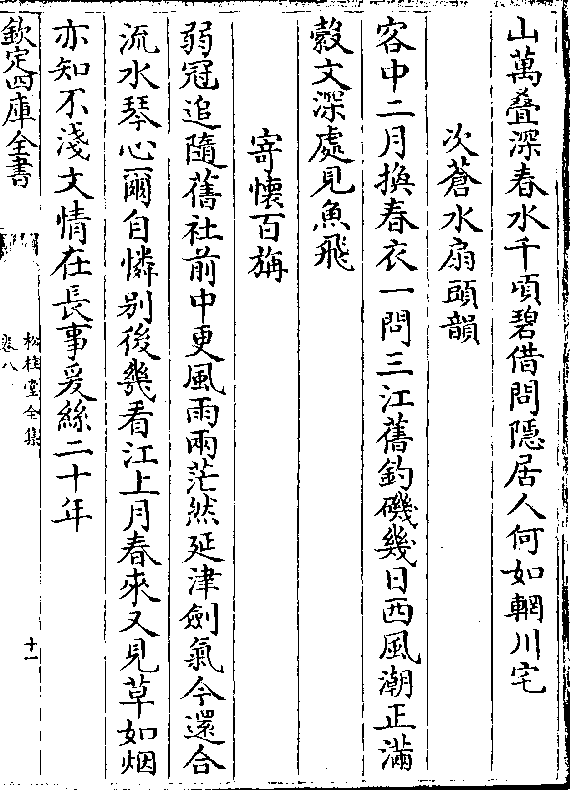 山萬叠深春水千頃碧借問隱居人何如輞川宅
次蒼水扇頭韻
客中二月換春衣一問三江舊釣磯幾日西風潮正滿
縠文深處見魚飛
寄懷百旃
弱冠追隨舊社前中更風雨兩茫然延津劍氣今還合
流水琴心爾自憐别後幾看江上月春來又見草如烟
亦知不淺文情在長事爰絲二十年
欽定四庫全書
松桂堂全集
卷八
十一